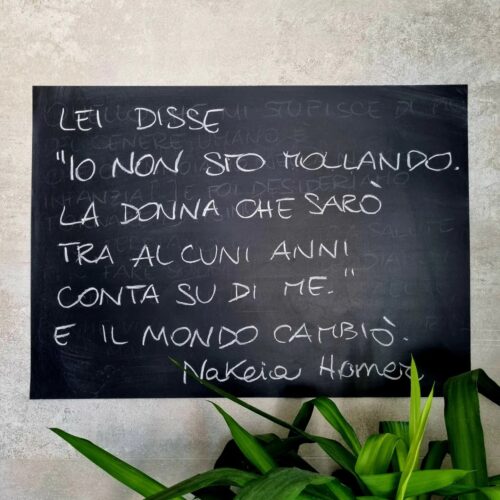 LEI DISSE
"IO NON STO MOLLANDO.
LA DONNA CHE SARÒ
TRA ALCUNI ANNI
CONTA SU DI ME."
E IL MONDO CAMBIÒ.
Nakeia Homer